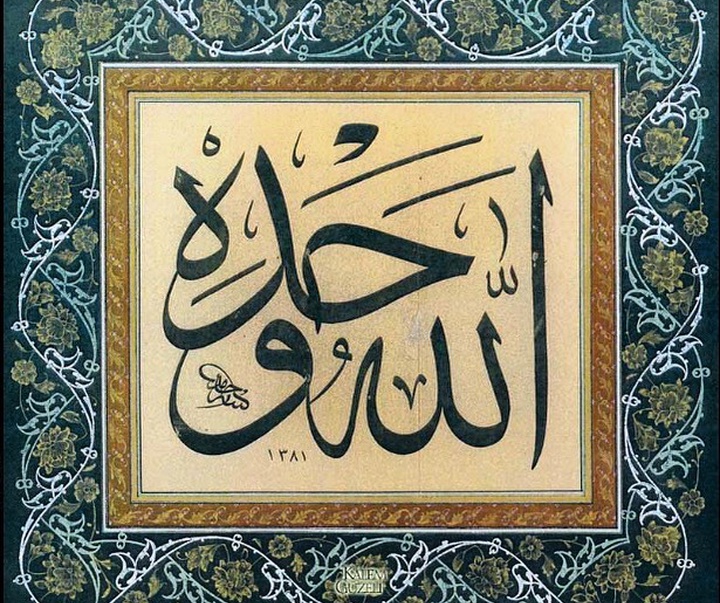 اللّٰهُ وَحْدَهُ
١٣٨١
KALEM
GÜZELİ